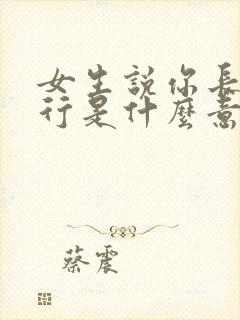 女生說你長
行是什麼意
蔡震